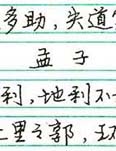 多助，失道
孟子
利，地利不
里之郭，环